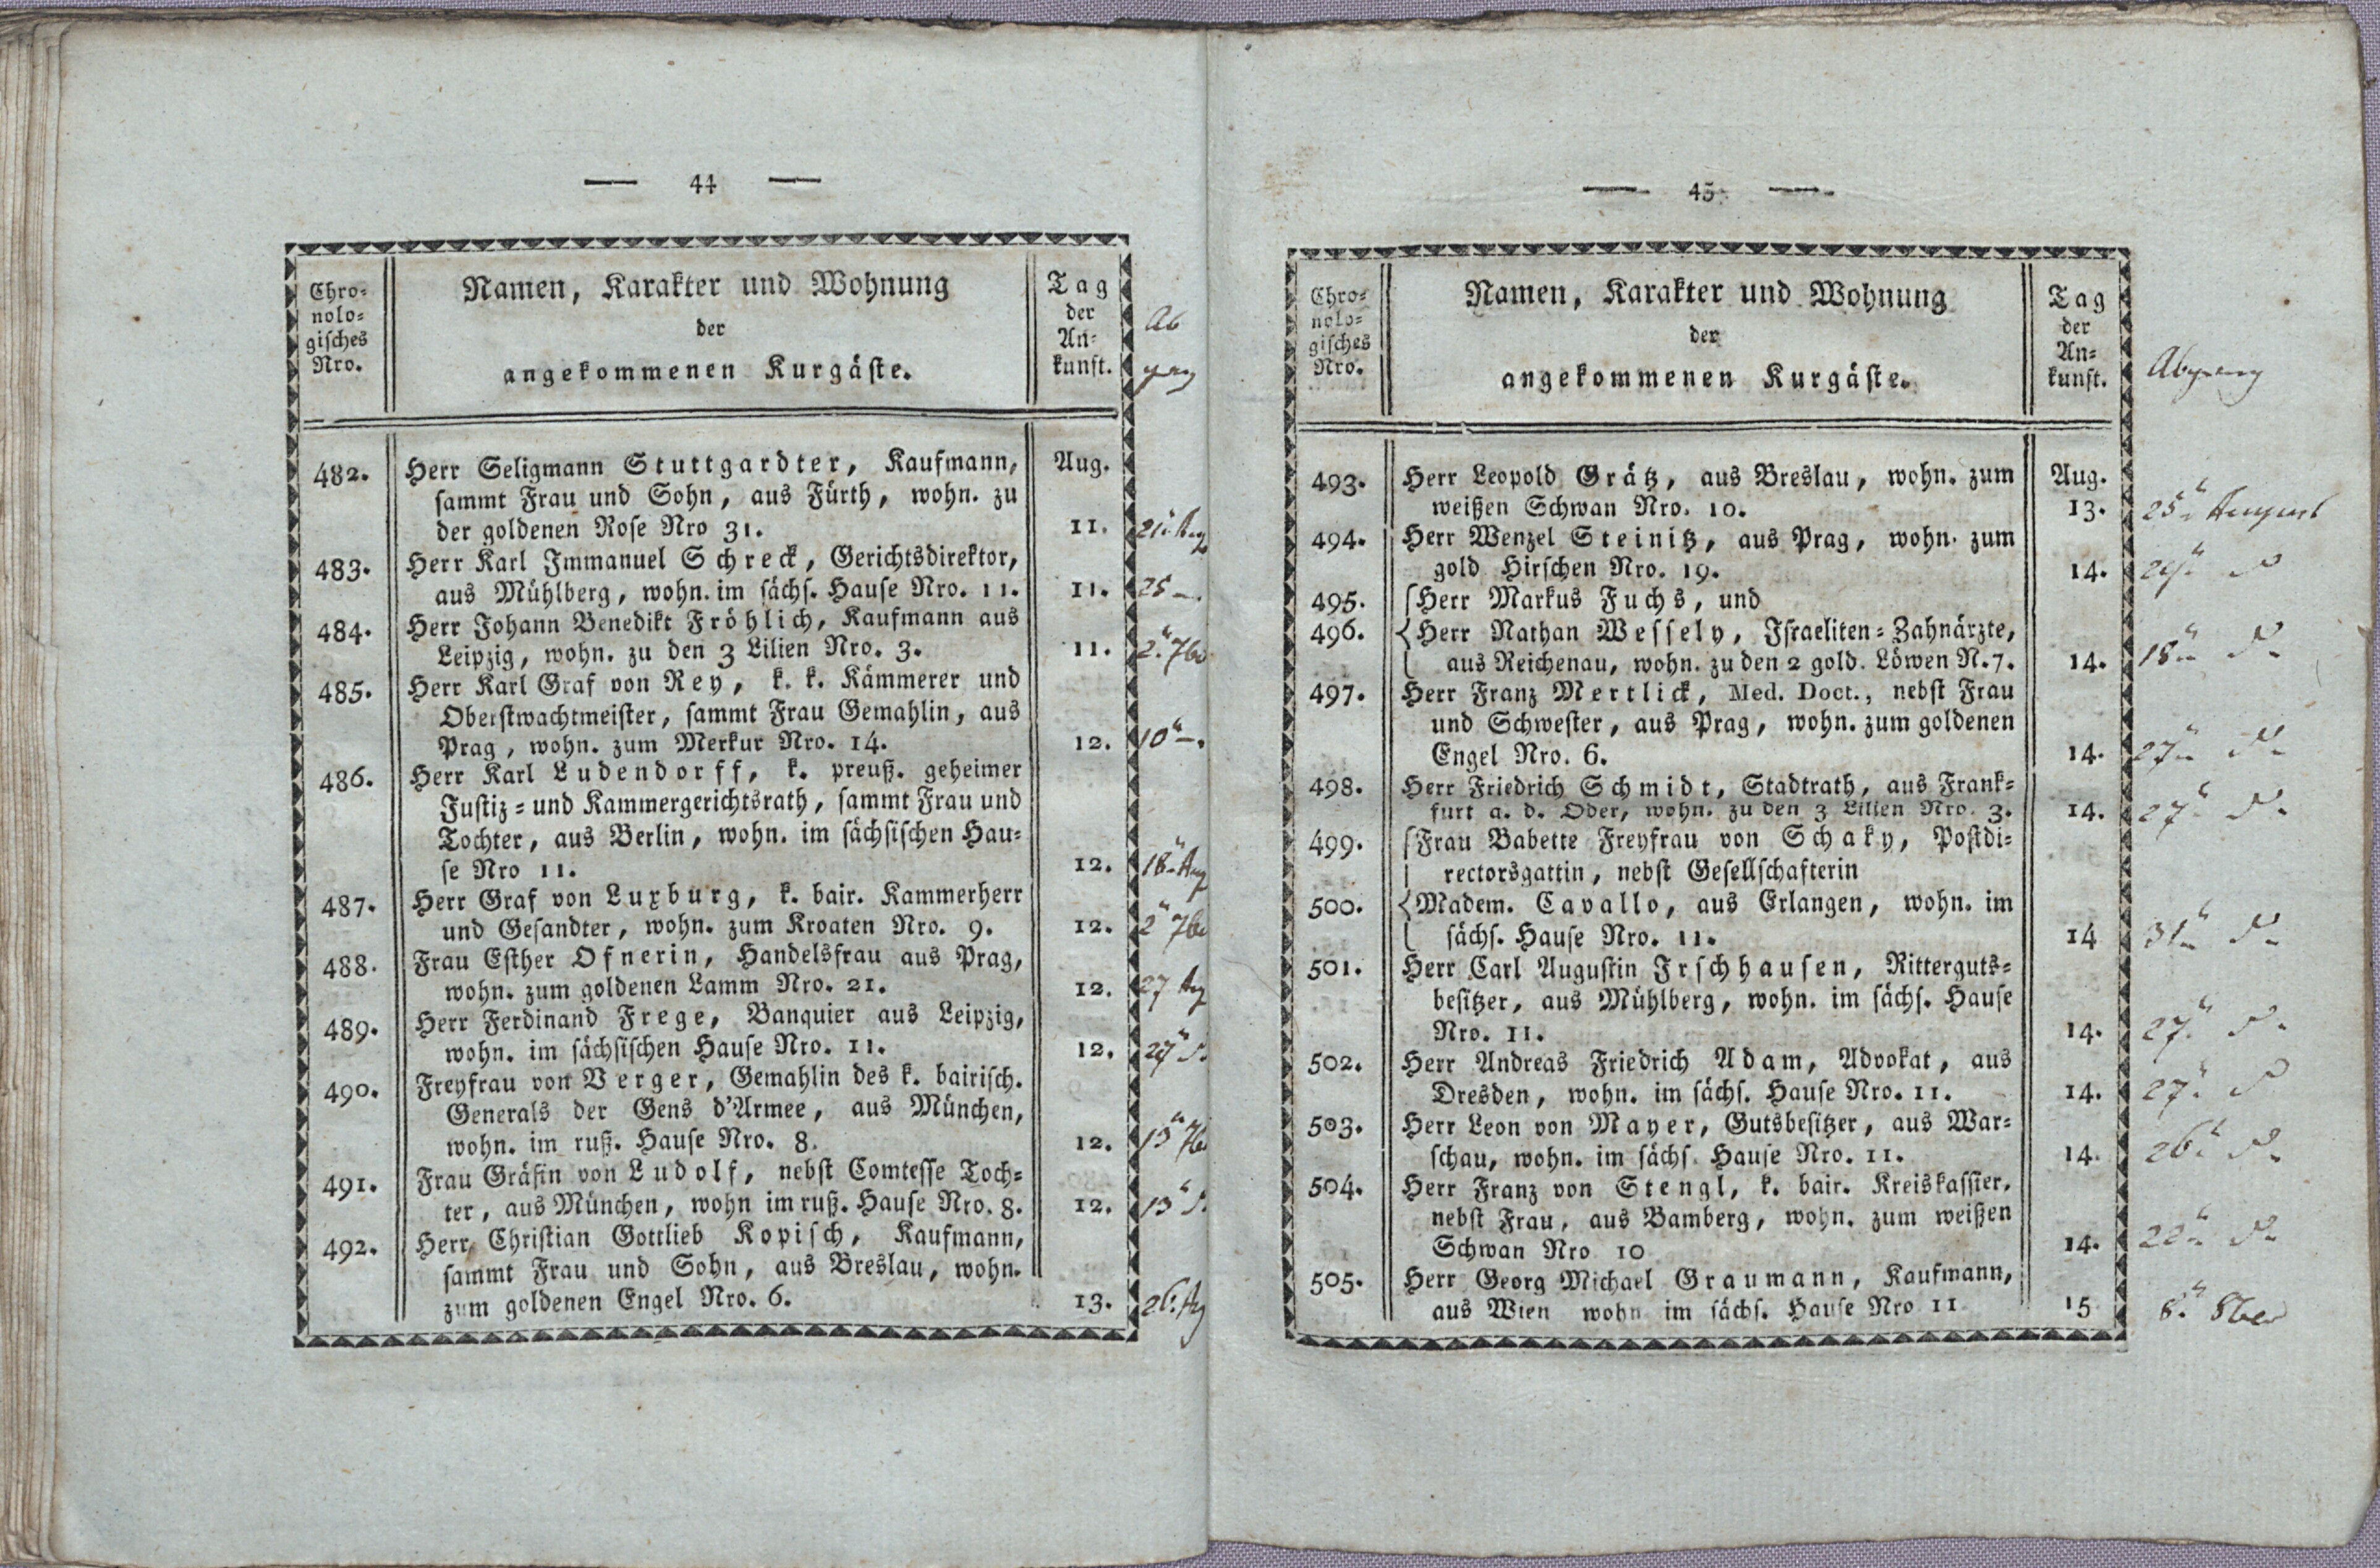 — 44 —
Chro-
nolo-
gisches
Nro.
Namen, Karakter und Wohnung
der
angekommenen Kurgäste.
Tag
der
An-
kunft.
Ab
gang
482. Herr Seligmann Stuttgardter, Kaufmann, Aug.
sammt Frau und Sohn, aus Fürth, wohn. zu
der goldenen Rose Nro 31. 11. 21. Aug
483. Herr Karl Immanuel Schreck, Gerichtsdirektor,
aus Mühlberg, wohn. im sächs. Hause Nro. 11. 11. 25 –.
484. Herr Johann Benedikt Fröhlich, Kaufmann aus
Leipzig, wohn. zu den 3 Lilien Nro. 3. 11. 2. 7be
485. Herr Karl Graf von Rey, k. k. Kämmerer und
Oberstwachtmeister, sammt Frau Gemahlin, aus
Prag, wohn. zum Merkur Nro. 14. 12. 10 –.
486. Herr Karl Ludendorff, k. preuß. geheimer
Justiz- und Kammergerichtsrath, sammt Frau und
Tochter, aus Berlin, wohn. im sächsischen Hau-
se Nro 11. 12. 18 Aug
487. Herr Graf von Luxburg, k. bair. Kammerherr
und Gesandter, wohn. zum Kroaten Nro. 9. 12. 2 7be
488. Frau Esther Ofnerin, Handelsfrau aus Prag,
wohn. zum goldenen Lamm Nro. 21. 12. 27 Aug
489. Herr Ferdinand Frege, Banquier aus Leipzig,
wohn. im sächsischen Hause Nro. 11. 12. 27
490. Freyfrau von Verger, Gemahlin des k. bairisch.
Generals der Gens d'Armee, aus München,
wohn. im ruß. Hause Nro. 8. 12. 13 7be
491. Frau Gräfin von Ludolf, nebst Comtesse Toch-
ter, aus München, wohn im ruß. Hause Nro. 8. 12. 13
492. Herr Christian Gottlieb Kopisch, Kaufmann,
sammt Frau und Sohn, aus Breslau, wohn.
zum goldenen Engel Nro. 6. 13. 26. Aug
— 45 —
Chro-
nolo-
gisches
Nro.
Namen, Karakter und Wohnung
der
angekommenen Kurgäste.
Tag
der
An-
kunft.
Abgang
493. Herr Leopold Grätz, aus Breslau, wohn. zum Aug.
weißen Schwan Nro. 10. 13. 25 August
494. Herr Wenzel Steinitz, aus Prag, wohn. zum
gold Hirschen Nro. 19. 14.
495. Herr Markus Fuchs, und
496. Herr Nathan Wessely, Israeliten-Zahnärzte,
aus Reichenau, wohn. zu den 2 gold. Löwen N. 7. 14. 18
497. Herr Franz Mertlick, Med. Doct., nebst Frau
und Schwester, aus Prag, wohn. zum goldenen
Engel Nro. 6. 14. 27
498. Herr Friedrich Schmidt, Stadtrath, aus Frank-
furt a. d. Oder, wohn. zu den 3 Lilien Nro. 3. 14. 27
499. Frau Babette Freyfrau von Schaky, Postdi-
rectorsgattin, nebst Gesellschafterin
500. Madem. Cavallo, aus Erlangen, wohn. im
sächs. Hause Nro. 11. 14 31
501. Herr Carl Augustin Irschhausen, Ritterguts-
besitzer, aus Mühlberg, wohn. im sächs. Hause
Nro. 11. 14. 27
502. Herr Andreas Friedrich Adam, Advokat, aus
Dresden, wohn. im sächs. Hause Nro. 11. 14. 27
503. Herr Leon von Mayer, Gutsbesitzer, aus War-
schau, wohn. im sächs. Hause Nro. 11. 14. 26
504. Herr Franz von Stengl, k. bair. Kreiskassier,
nebst Frau, aus Bamberg, wohn. zum weißen
Schwan Nro 10 14. 22
505. Herr Georg Michael Graumann, Kaufmann,
aus Wien wohn im sächs. Hause Nro 11 15 8. 8ber